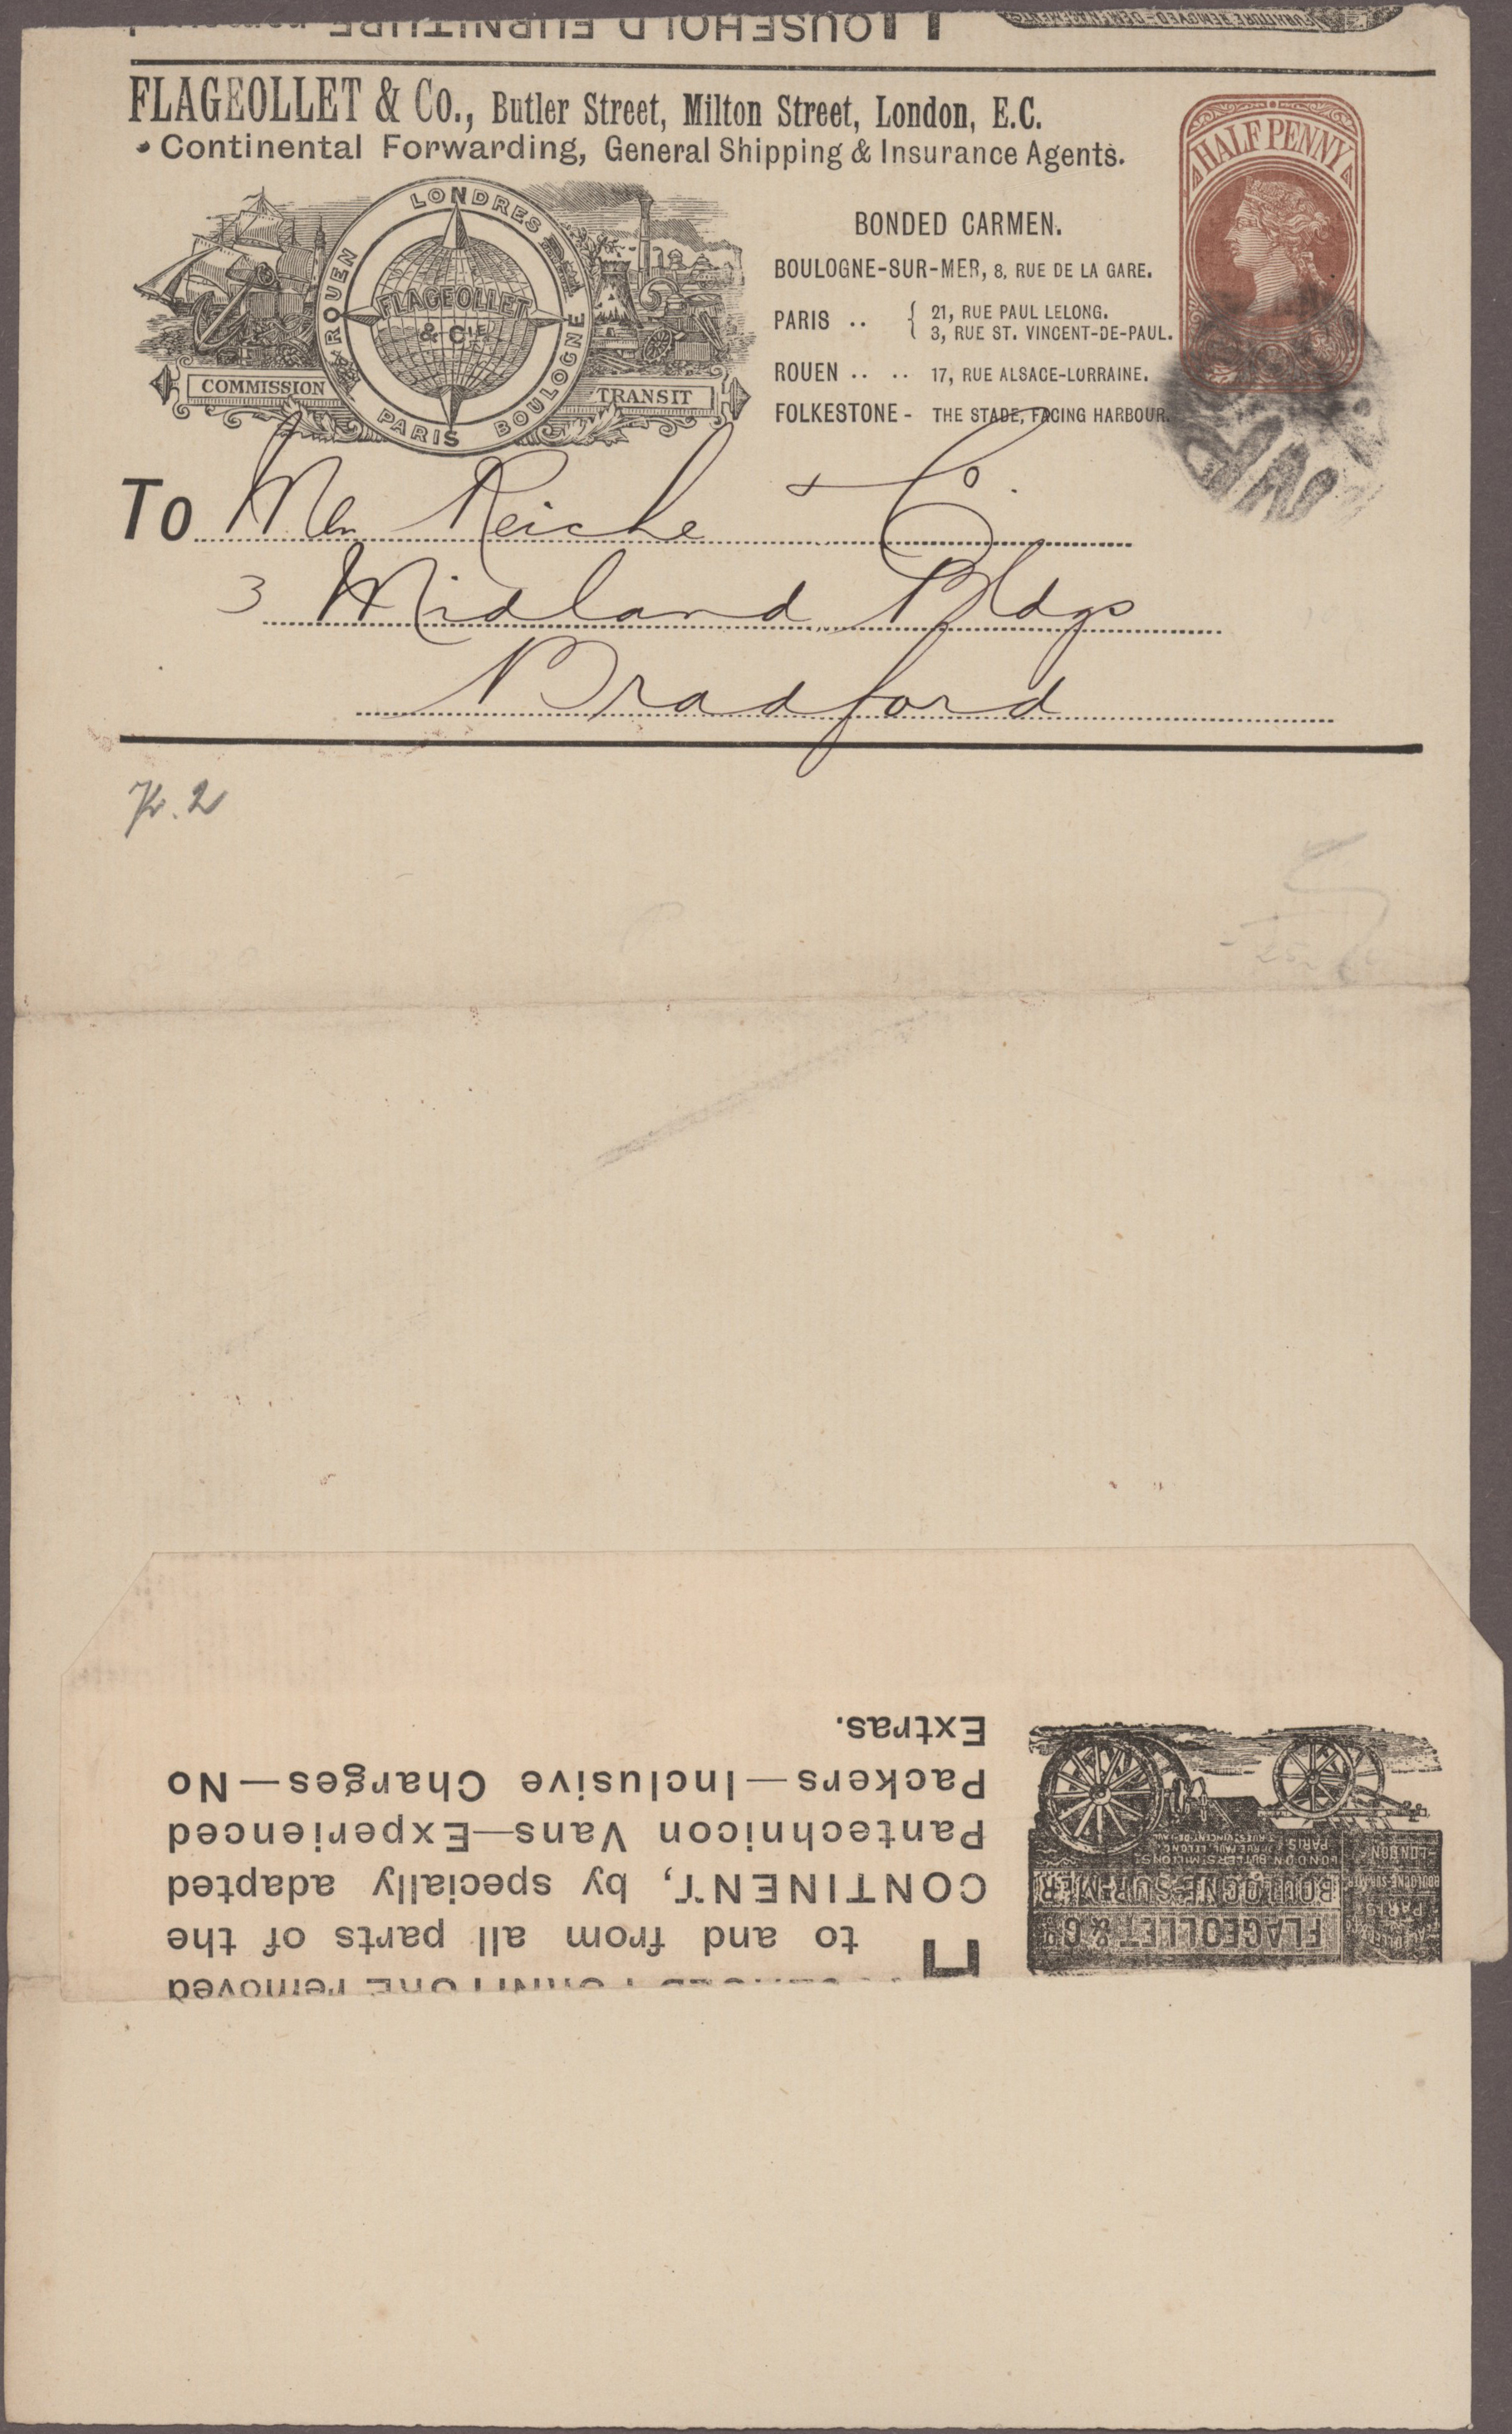 HOUSEHOLD FURNITURE removed
FURNITURE REMOVED-DEMENAGEMENTS
FLAGEOLLET & Co., Butler Street, Milton Street, London, E.C.
Continental Forwarding, General Shipping & Insurance Agents.
HALF PENNY
LONDRES
ROUEN
BOULOGNE
PARIS
FLAGEOLLET
& CIE
COMMISSION
TRANSIT
BONDED CARMEN.
BOULOGNE-SUR-MER, 8, RUE DE LA GARE.
PARIS .. { 21, RUE PAUL LELONG.
3, RUE ST. VINCENT-DE-PAUL.
ROUEN .. .. 17, RUE ALSACE-LORRAINE.
FOLKESTONE - THE STADE, FACING HARBOUR.
To Mess Reiche & Co.
3 Midland Bldgs
Bradford
2
HOUSEHOLD FURNITURE removed
to and from all parts of the
CONTINENT, by specially adapted
Pantechnicon Vans—Experienced
Packers—Inclusive Charges—No
Extras.
FLAGEOLLET & Co
BOULOGNE-SUR-MER
LONDON BUTLER ST MILTON ST
PARIS
PARIS
BOULOGNE-SUR-MER
-LONDON-